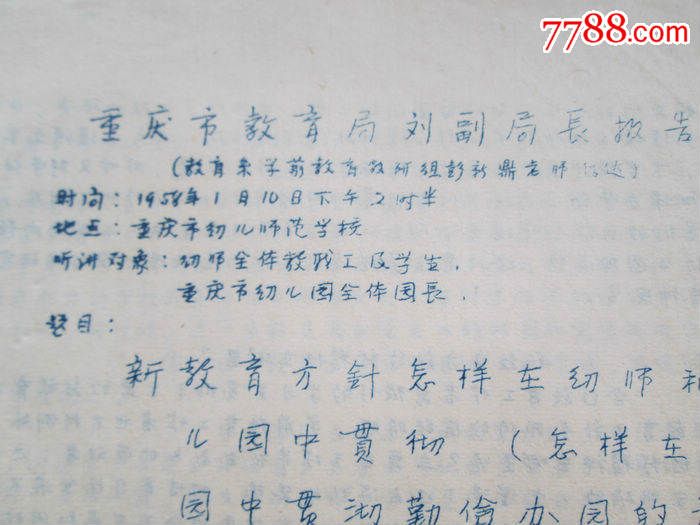 7788.com
重庆市教育局刘副局長报告
(教育系学前教育教研组彭新鼎老师传达)
时间：1958年1月10日下午2时半
地点：重庆市幼儿师范学校
听讲对象：幼师全体教职工及学生.
重庆市幼儿园全体园長.
题目：
新教育方針怎样在幼师和
儿园中貫彻 (怎样在
园中贯沏勤倹办园的